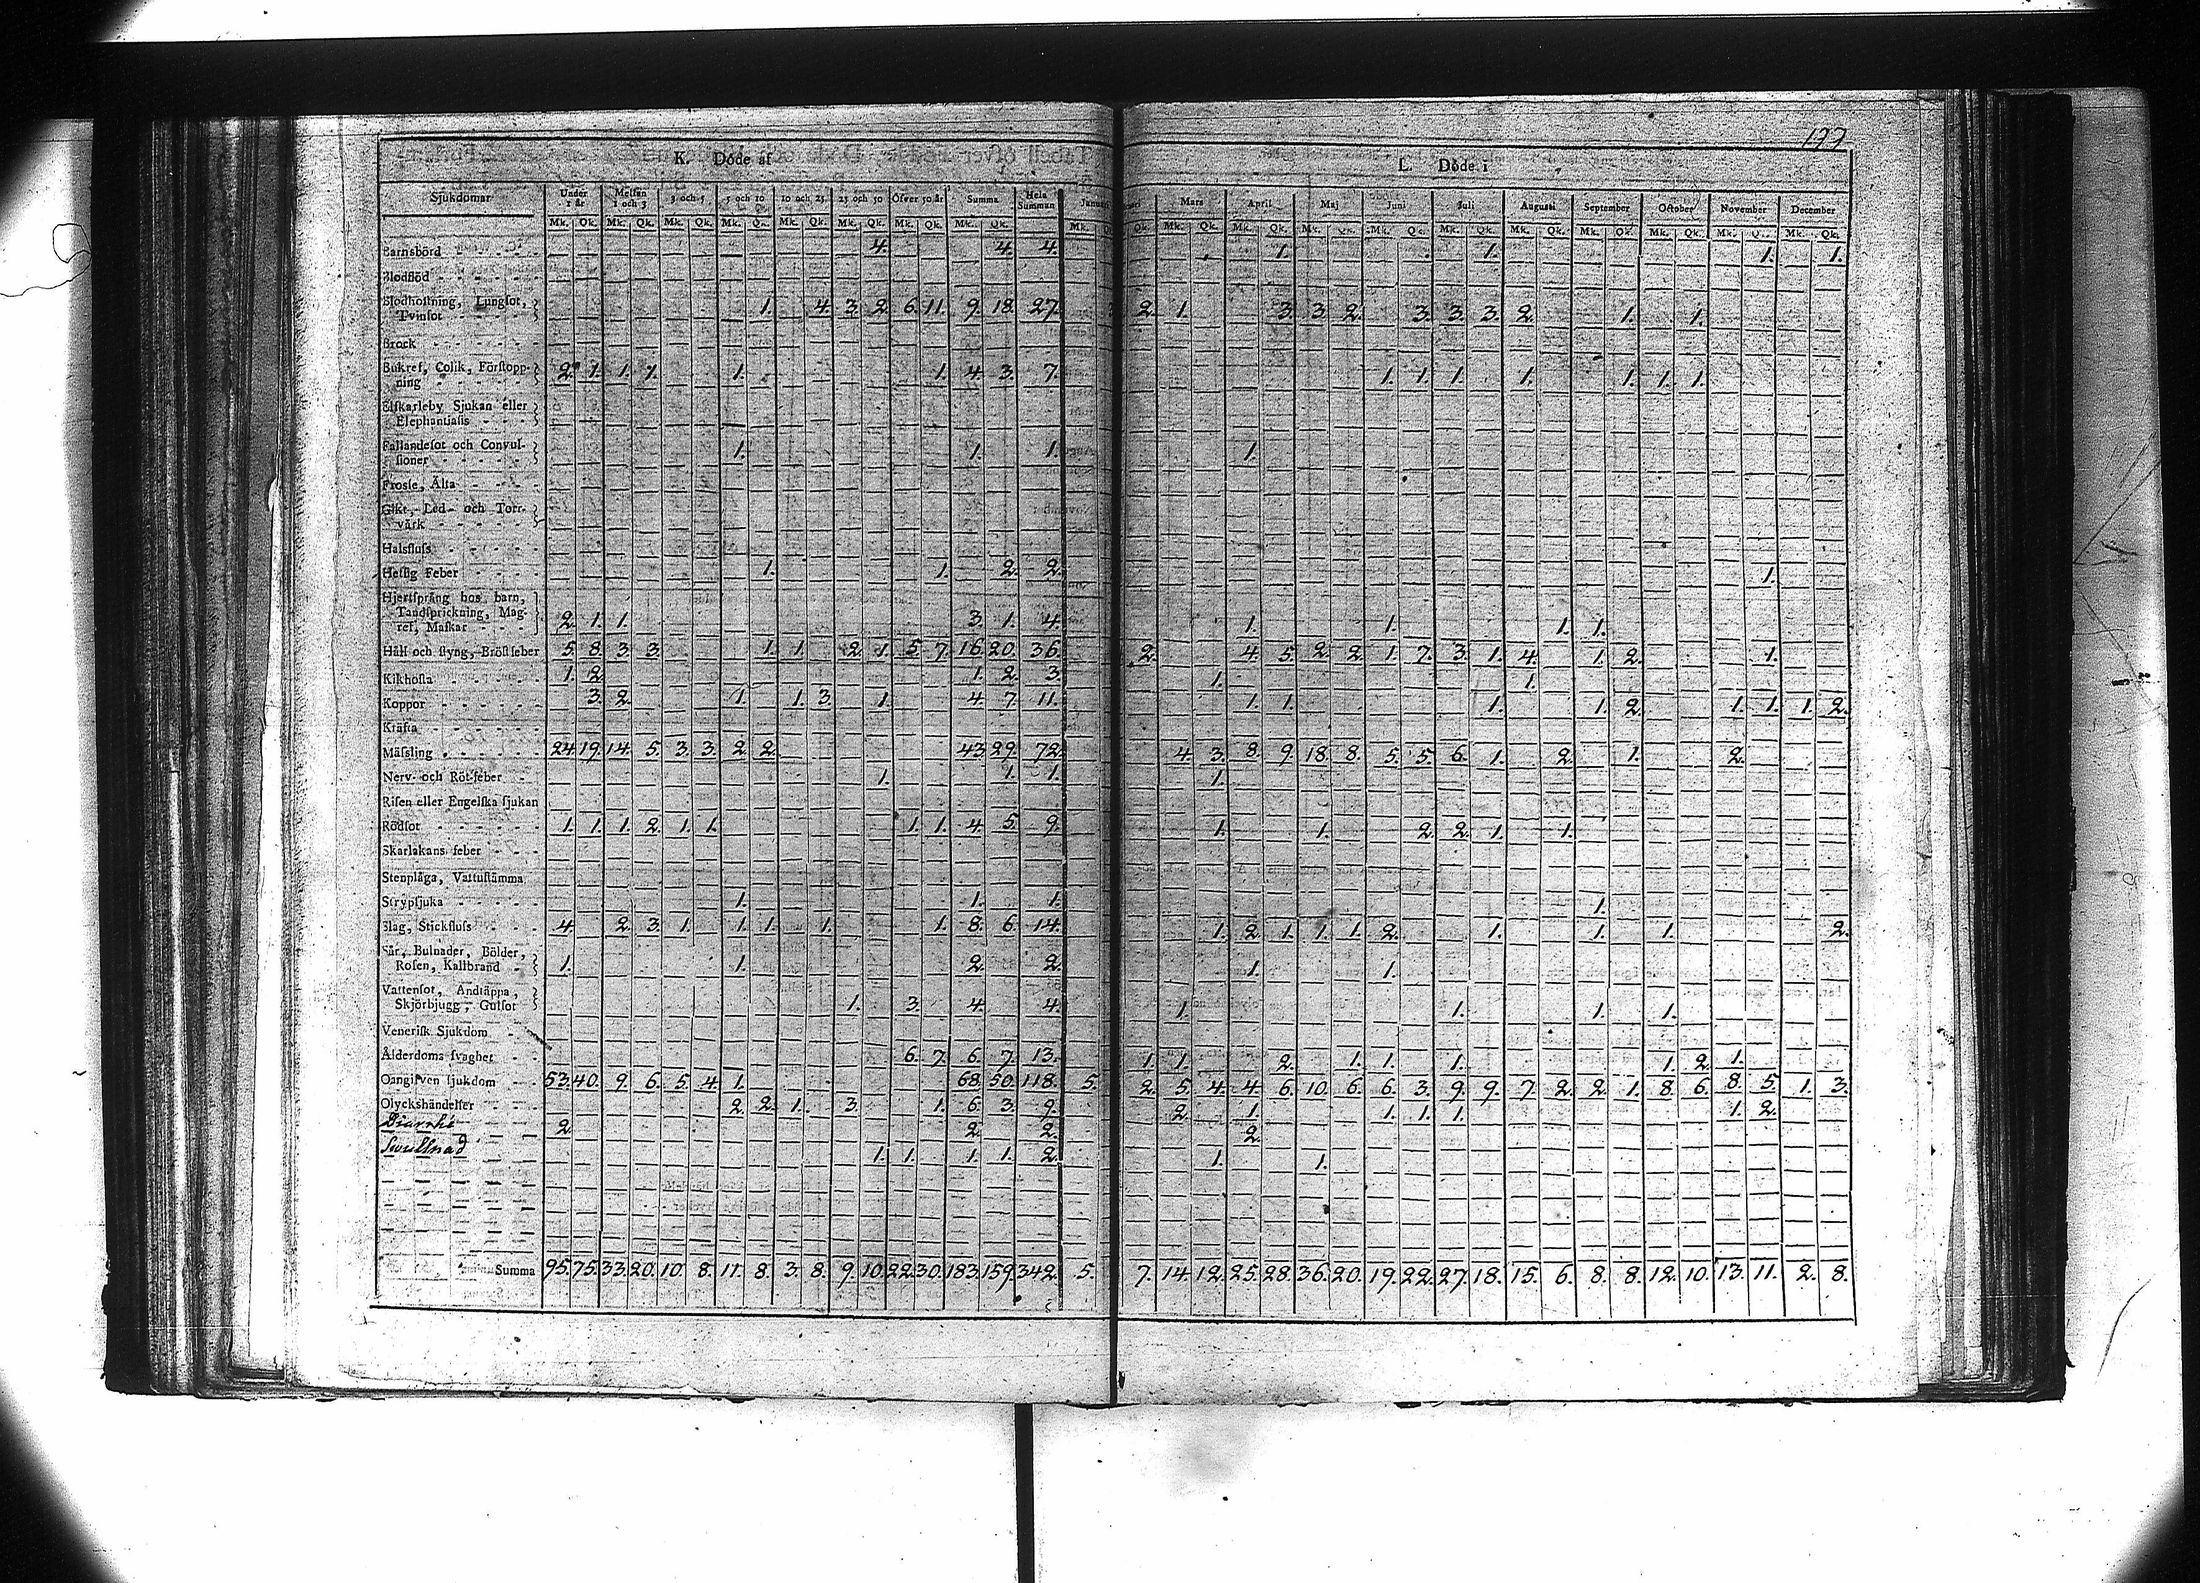 177
K. Döde af
L. Döde i
Sjukdomar | Under 1 år | Mellan 1 och 3 | 3 och 5 | 5 och 10 | 10 och 25 | 25 och 50 | Öfver 50 år | Summa | Hela Summan | Mars | April | Maj | Juni | Juli | Augusti | September | October | November | December
Mk. Qk. Mk. Qk. Mk. Qk. Mk. Qk. Mk. Qk. Mk. Qk. Mk. Qk. Mk. Qk. Mk. Qk. Mk. Qk. Mk. Qk. Mk. Qk. Mk. Qk. Mk. Qk. Mk. Qk. Mk. Qk. Mk. Qk. Mk. Qk. Mk. Qk.
Barnsbörd 4. 4. 4. 1. 1. 1. 1.
Blodflöd
Blodhostning, Lungsot,
Tvinsot 1. 4. 3. 2. 6. 11. 9. 18. 27. 2. 1. 3. 3. 2. 3. 3. 3. 2. 1. 1.
Brock
Bukref, Colik, Förstopp-
ning 2. 1. 1. 1. 1. 1. 4. 3. 7. 1. 1. 1. 1. 1. 1. 1.
Elskarleby Sjukan eller
Elephantiasis
Fallandesot och Convul-
sioner 1. 1. 1. 1.
Frossa, Älta
Gikt, Led- och Torr-
värk
Halsfluss
Hetsig Feber 1. 1. 2. 2. 1.
Hjertsprång hos barn,
Tandsprickning, Mag-
ref, Maskar 2. 1. 1. 3. 1. 4. 1. 1. 1. 1.
Håll och styng, Bröstfeber 5. 8. 3. 3. 1. 1. 2. 1. 5. 7. 16. 20. 36. 2. 4. 5. 2. 2. 1. 7. 3. 1. 4. 1. 2. 1.
Kikhosta 1. 2. 1. 2. 3. 1. 1.
Koppor 3. 2. 1. 1. 3. 1. 4. 7. 11. 1. 1. 1. 1. 2. 1. 1. 1. 2.
Kräfta
Mässling 24. 19. 14. 5. 3. 3. 2. 2. 43. 29. 72. 4. 3. 8. 9. 18. 8. 5. 5. 6. 1. 2. 1. 2.
Nerv- och Röt-feber 1. 1. 1. 1.
Risen eller Engelska sjukan
Rödsot 1. 1. 1. 2. 1. 1. 1. 1. 4. 5. 9. 1. 1. 2. 2. 1. 1.
Skarlakans feber
Stenplåga, Vattustämma
Strypsjuka 1. 1. 1. 1.
Slag, Stickfluss 4. 2. 3. 1. 1. 1. 1. 1. 8. 6. 14. 1. 2. 1. 1. 1. 2. 1. 1. 1. 2.
Sår, Bulnader, Bölder,
Rosen, Kallbrand 1. 1. 2. 2. 1. 1.
Vattensot, Andtäppa,
Skjörbjugg, Gulsot 1. 3. 4. 4. 1. 1. 1. 1.
Venerisk Sjukdom
Ålderdoms svaghet 6. 7. 6. 7. 13. 1. 1. 2. 1. 1. 1. 1. 2. 1.
Oangifven sjukdom 53. 40. 9. 6. 5. 4. 1. 68. 50. 118. 5. 2. 5. 4. 4. 6. 10. 6. 6. 3. 9. 9. 7. 2. 2. 1. 8. 6. 8. 5. 1. 3.
Olyckshändelser 2. 2. 1. 3. 1. 6. 3. 9. 2. 1. 1. 1. 1. 1. 2.
Diarrhé 2. 2. 2. 2.
Svullnad 1. 1. 1. 1. 2. 1. 1.
Summa 95. 75. 33. 20. 10. 8. 11. 8. 3. 8. 9. 10. 22. 30. 183. 159. 342. 5. 7. 14. 12. 25. 28. 36. 20. 19. 22. 27. 18. 15. 6. 8. 8. 12. 10. 13. 11. 2. 8.